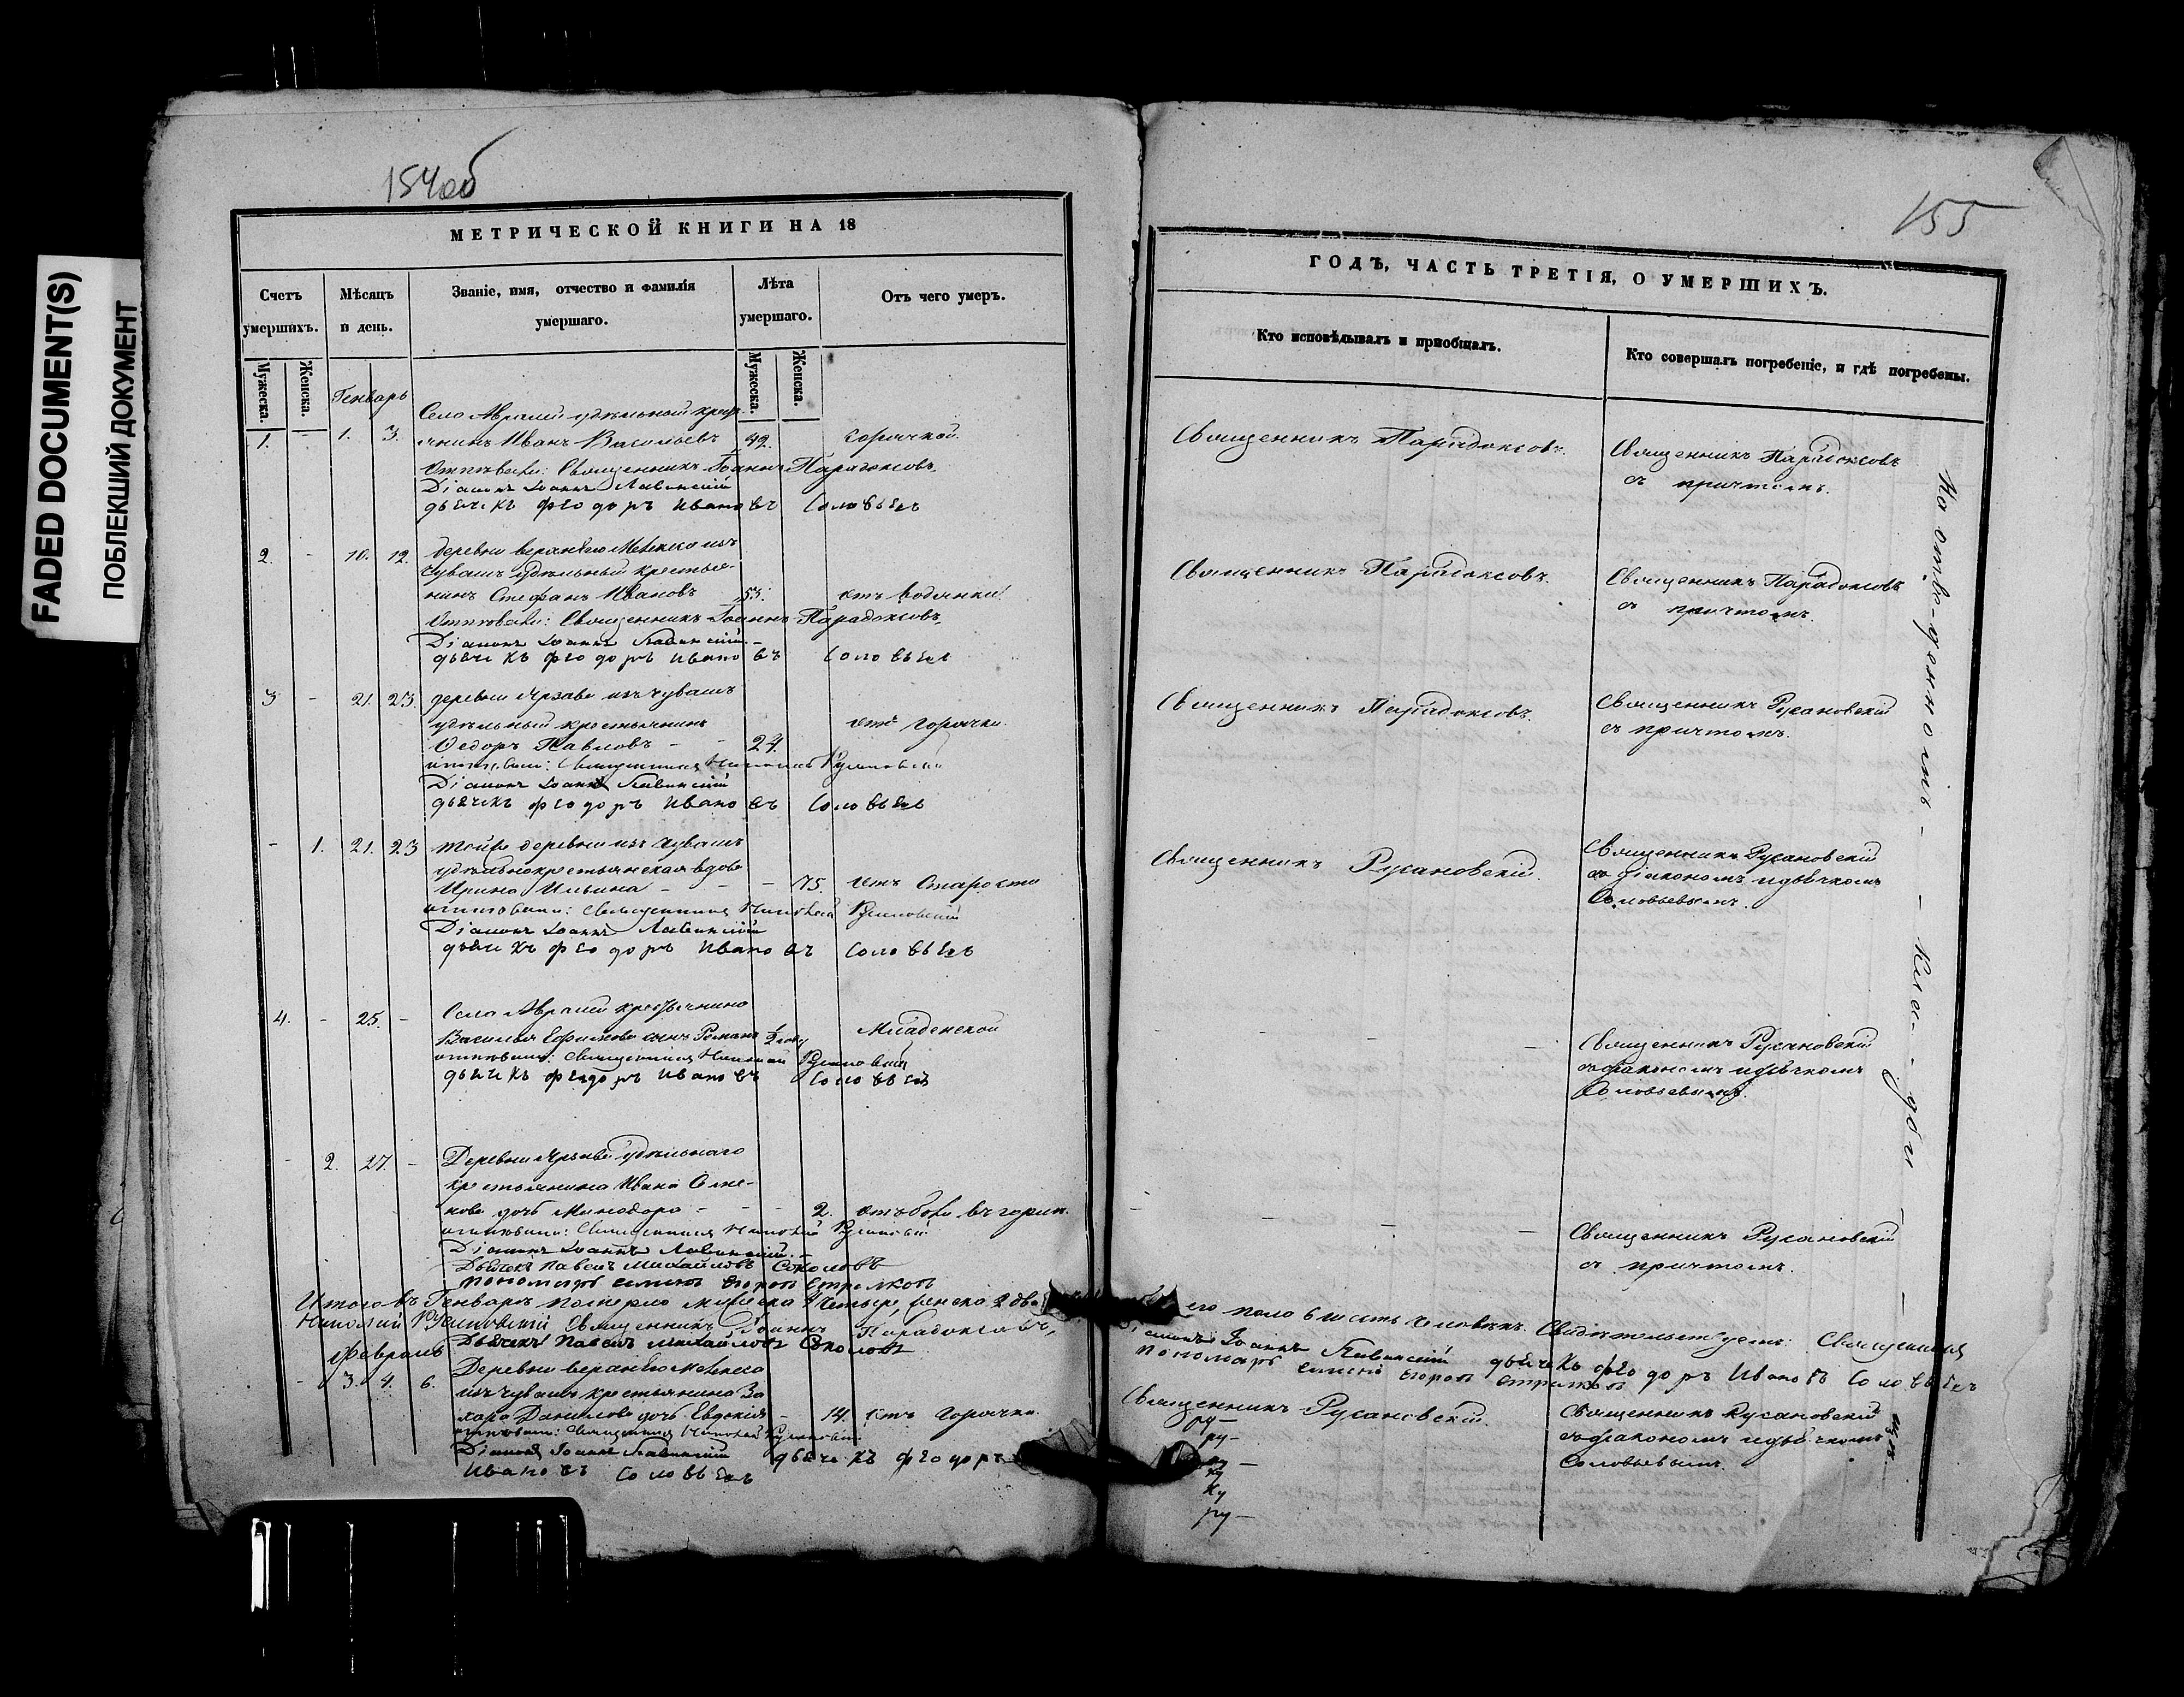 FADED DOCUMENT(S)
ПОБЛЕКШИЙ ДОКУМЕНТ
154об
МЕТРИЧЕСКОЙ КНИГИ НА 18
Счетъ умершихъ.
Мѣсяцъ и день.
Званіе, имя, отчество и фамилія умершаго.
Лѣта умершаго.
Отъ чего умеръ.
Мужеска.
Женска.
Мужеска.
Женска.
Генварь
Село Авралей удѣльной кресть
1. - 1. 3. янинъ Иванъ Васильевъ 42. горячкой
Отпѣвали: Священникъ Іоаннъ Парадоксовъ
Діаконъ Іоаннъ Лавинскій
дьячекъ Феодоръ Ивановъ Соловьевъ
2. - 10. 12. деревни
чувашъ удѣльный крестья-
нинъ Стефанъ Ивановъ 53. отъ водянки
Отпѣвали: Священникъ Іоаннъ Парадоксовъ,
Діаконъ Іоаннъ Лавинскій
дьячекъ Феодоръ Ивановъ Соловьевъ
3 - 21. 23. деревни изъ чувашъ
удѣльный крестьянинъ отъ горячки.
Ѳедоръ Павловъ - - 24.
отпѣвали: Священникъ Николай Русановскій
Діаконъ Іоаннъ Лавинскій
дьячекъ Феодоръ Ивановъ Соловьевъ
- 1. 21. 23 тойже деревни изъ чувашъ
удѣльнокрестьянская вдова
Ирина Ильина - - - 75. отъ Старости
отпѣвали: Священникъ Николай Русановскій
Діаконъ Іоаннъ Лавинскій
дьячекъ Феодоръ Ивановъ Соловьевъ
4. - 25. - Села крестьянина
Василья Ефимова сынъ Романъ ½ году Младенской
отпѣвали: Священникъ Николай Русановскій
дьячекъ Феодоръ Ивановъ Соловьевъ
- 2. 27. - Деревни удѣльнаго
крестьянина Ивана Семе-
нова дочь Минодора - - - 2. отъ боли въ горлѣ.
отпѣвали: Священникъ Николай Русановскій
Діаконъ Іоаннъ Лавинскій. -
Дьячекъ Павелъ Михайловъ Соколовъ
Пономарь Егоровъ Стрелковъ
Итого въ Генварѣ померло мужеска 4 четыре, женска 2 два
Николай Русановскій Священникъ Іоаннъ Парадоксовъ,
Дьячекъ Павелъ Михайловъ Соколовъ
Февраль
Деревни
- 3. 4. 6. изъ чувашъ крестьянина За
хара Данилова дочь Евдокія - 14. отъ горячки.
отпѣвали: Священникъ Николай Русановскій
Діаконъ Іоаннъ Лавинскій дьячекъ Феодоръ
Ивановъ Соловьевъ
155
ГОДЪ, ЧАСТЬ ТРЕТІЯ, О УМЕРШИХЪ.
Кто исповѣдывалъ и пріобщалъ.
Кто совершалъ погребеніе, и гдѣ погребены.
Священникъ Парадоксовъ.
Священникъ Парадоксовъ
съ причтомъ.
Священникъ Парадоксовъ.
Священникъ Парадоксовъ
съ причтомъ.
Священникъ Парадоксовъ.
Священникъ Русановскій
съ причтомъ.
Священникъ Русановскій.
Священникъ Русановскій
съ діакономъ и дьячкомъ
Соловьевымъ.
Священникъ Русановскій
съ діакономъ и дьячкомъ
Соловьевымъ.
Священникъ Русановскій
съ причтомъ.
его пола 6 шесть человѣкъ. Свидѣтельствуемъ: Священникъ
Іоаннъ Лавинскій дьячекъ Феодоръ Ивановъ Соловьевъ
Пономарь Егоровъ Стрелковъ
Священникъ Русановскій.
Священникъ Русановскій
съ діакономъ и дьячкомъ
Соловьевымъ.
ру-
ру-
ру-
ру-
На отведенномъ - - Клад-